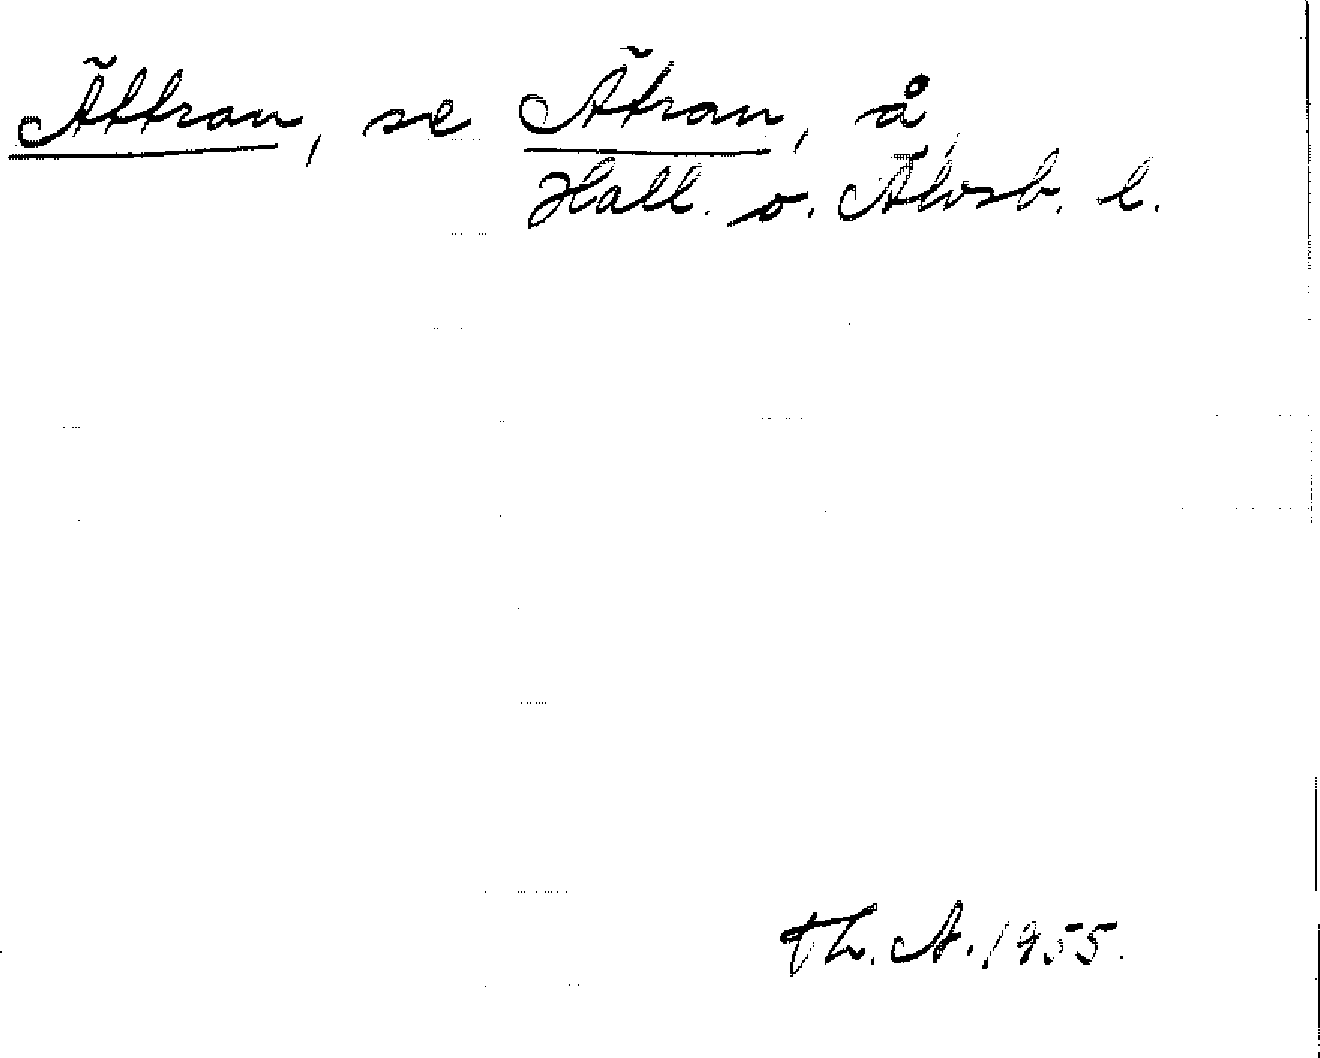 Ättran, se Ätran, å,
Hall. o. Älvsb. l.
Th. A. 1955.